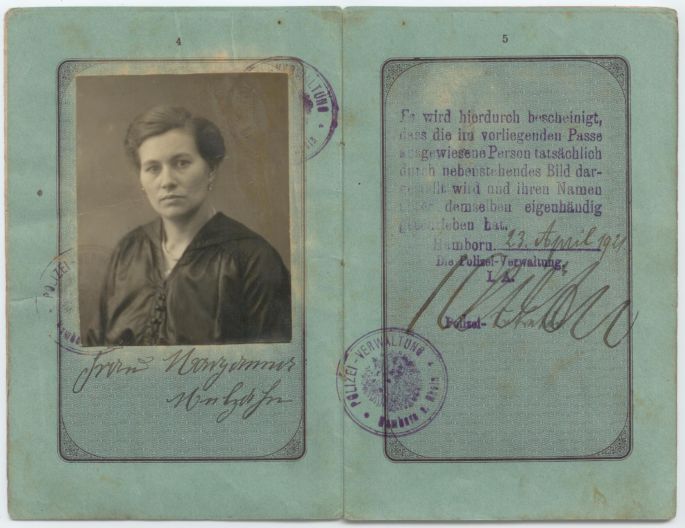 4
POLIZEI-VERWALTUNG
Frau Maryanna
5
Es wird hierdurch bescheinigt,
dass die im vorliegenden Passe
ausgewiesene Person tatsächlich
durch nebenstehendes Bild dar-
gestellt wird und ihren Namen
unter demselben eigenhändig
geschrieben hat.
Hamborn, 23. April 1921
Die Polizei-Verwaltung,
I. A.
Polizei-
POLIZEI-VERWALTUNG
Hamborn a. Rhein